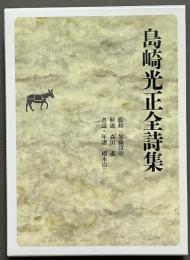 島崎光正全詩集
監修 加藤常昭
解説 森田進
書誌・年譜 橋本治